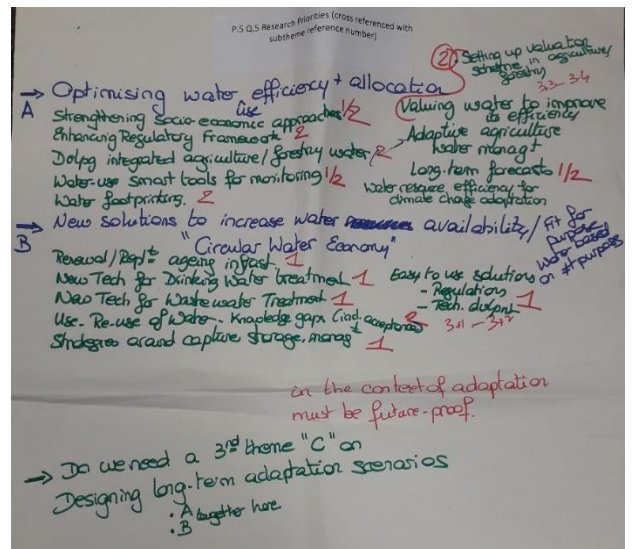 P.5 Q.5 Research Priorities (cross referenced with
subtheme reference number)
② Setting up valuation
scheme in agriculture/
forestry
3.3 - 3.4
→ Optimising water efficiency + allocation
A
use
Strengthening Socio-economic approaches 1/2
Enhancing Regulatory Framework 2
Dolpg integrated agriculture/forestry water 2
Water-use smart tools for monitoring 1/2
Water footprinting. 2
Valuing water to improve
its efficiency
Adaptive agriculture
water managt
Long-term forecasts 1/2
Water resource efficiency for
climate change adaptation
→ New solutions to increase water availability/
B
Fit for
purpose
Water based
on ≠ purposes
"Circular Water Economy"
Renewal/Repl.t ageing infrast 1
New Tech for Drinking Water treatment 1
New Tech for Wastewater Treatment 1
Use - Re-use of Water - Knowledge gaps (ind. acceptance) 2
Strategies around capture storage. managt 1
Easy to use solutions
- Regulations
- Tech. dvlpnt 1
3.1 - 3.2
in the context of adaptation
must be future-proof.
→ Do we need a 3rd theme "C" on
Designing long-term adaptation scenarios
. A together here
. B